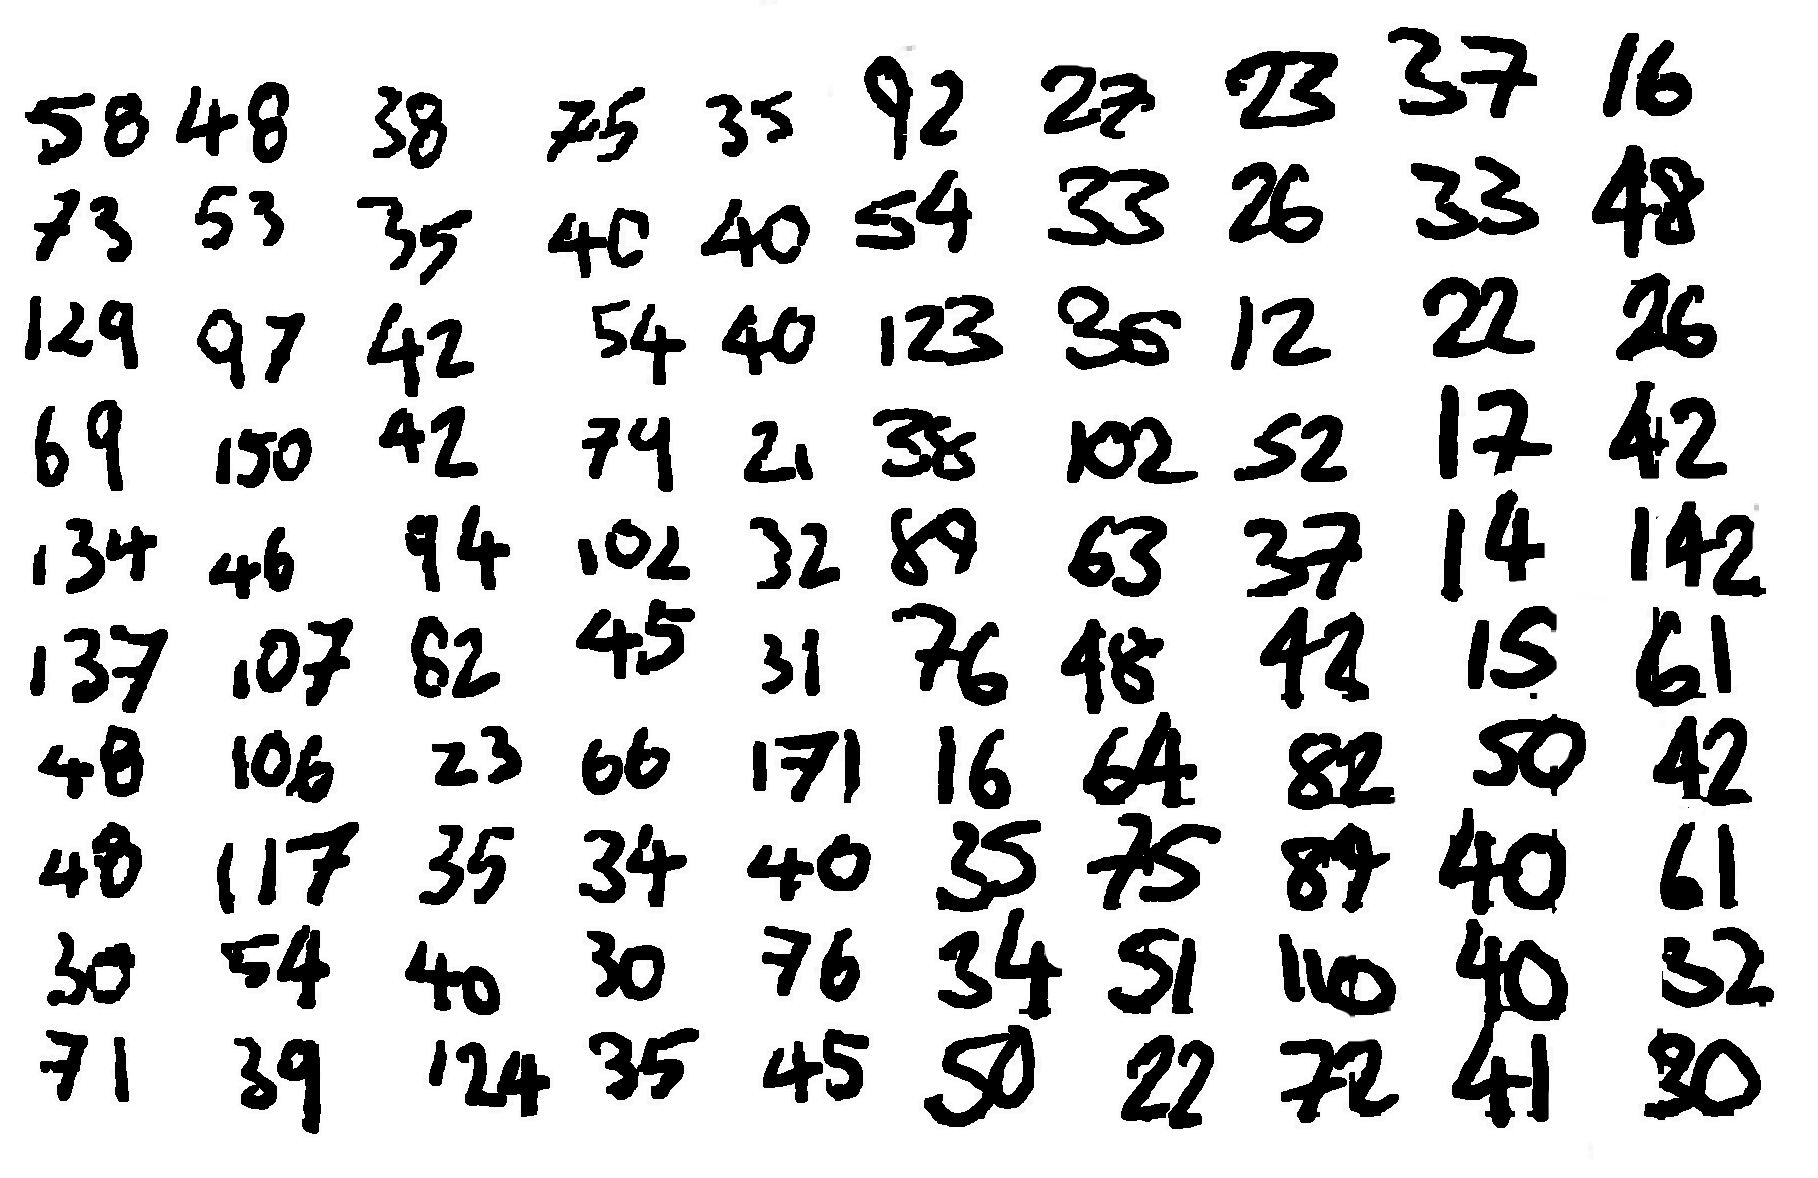 58 48 38 75 35 92 27 23 37 16
73 53 35 40 40 54 33 26 33 48
129 97 42 54 40 123 36 12 22 26
69 150 42 74 21 38 102 52 17 42
134 46 94 102 32 89 63 37 14 142
137 107 82 45 31 76 48 42 15 61
48 106 23 66 171 16 64 82 50 42
48 117 35 34 40 35 75 89 40 61
30 54 40 30 76 34 51 110 40 32
71 39 124 35 45 50 22 72 41 30